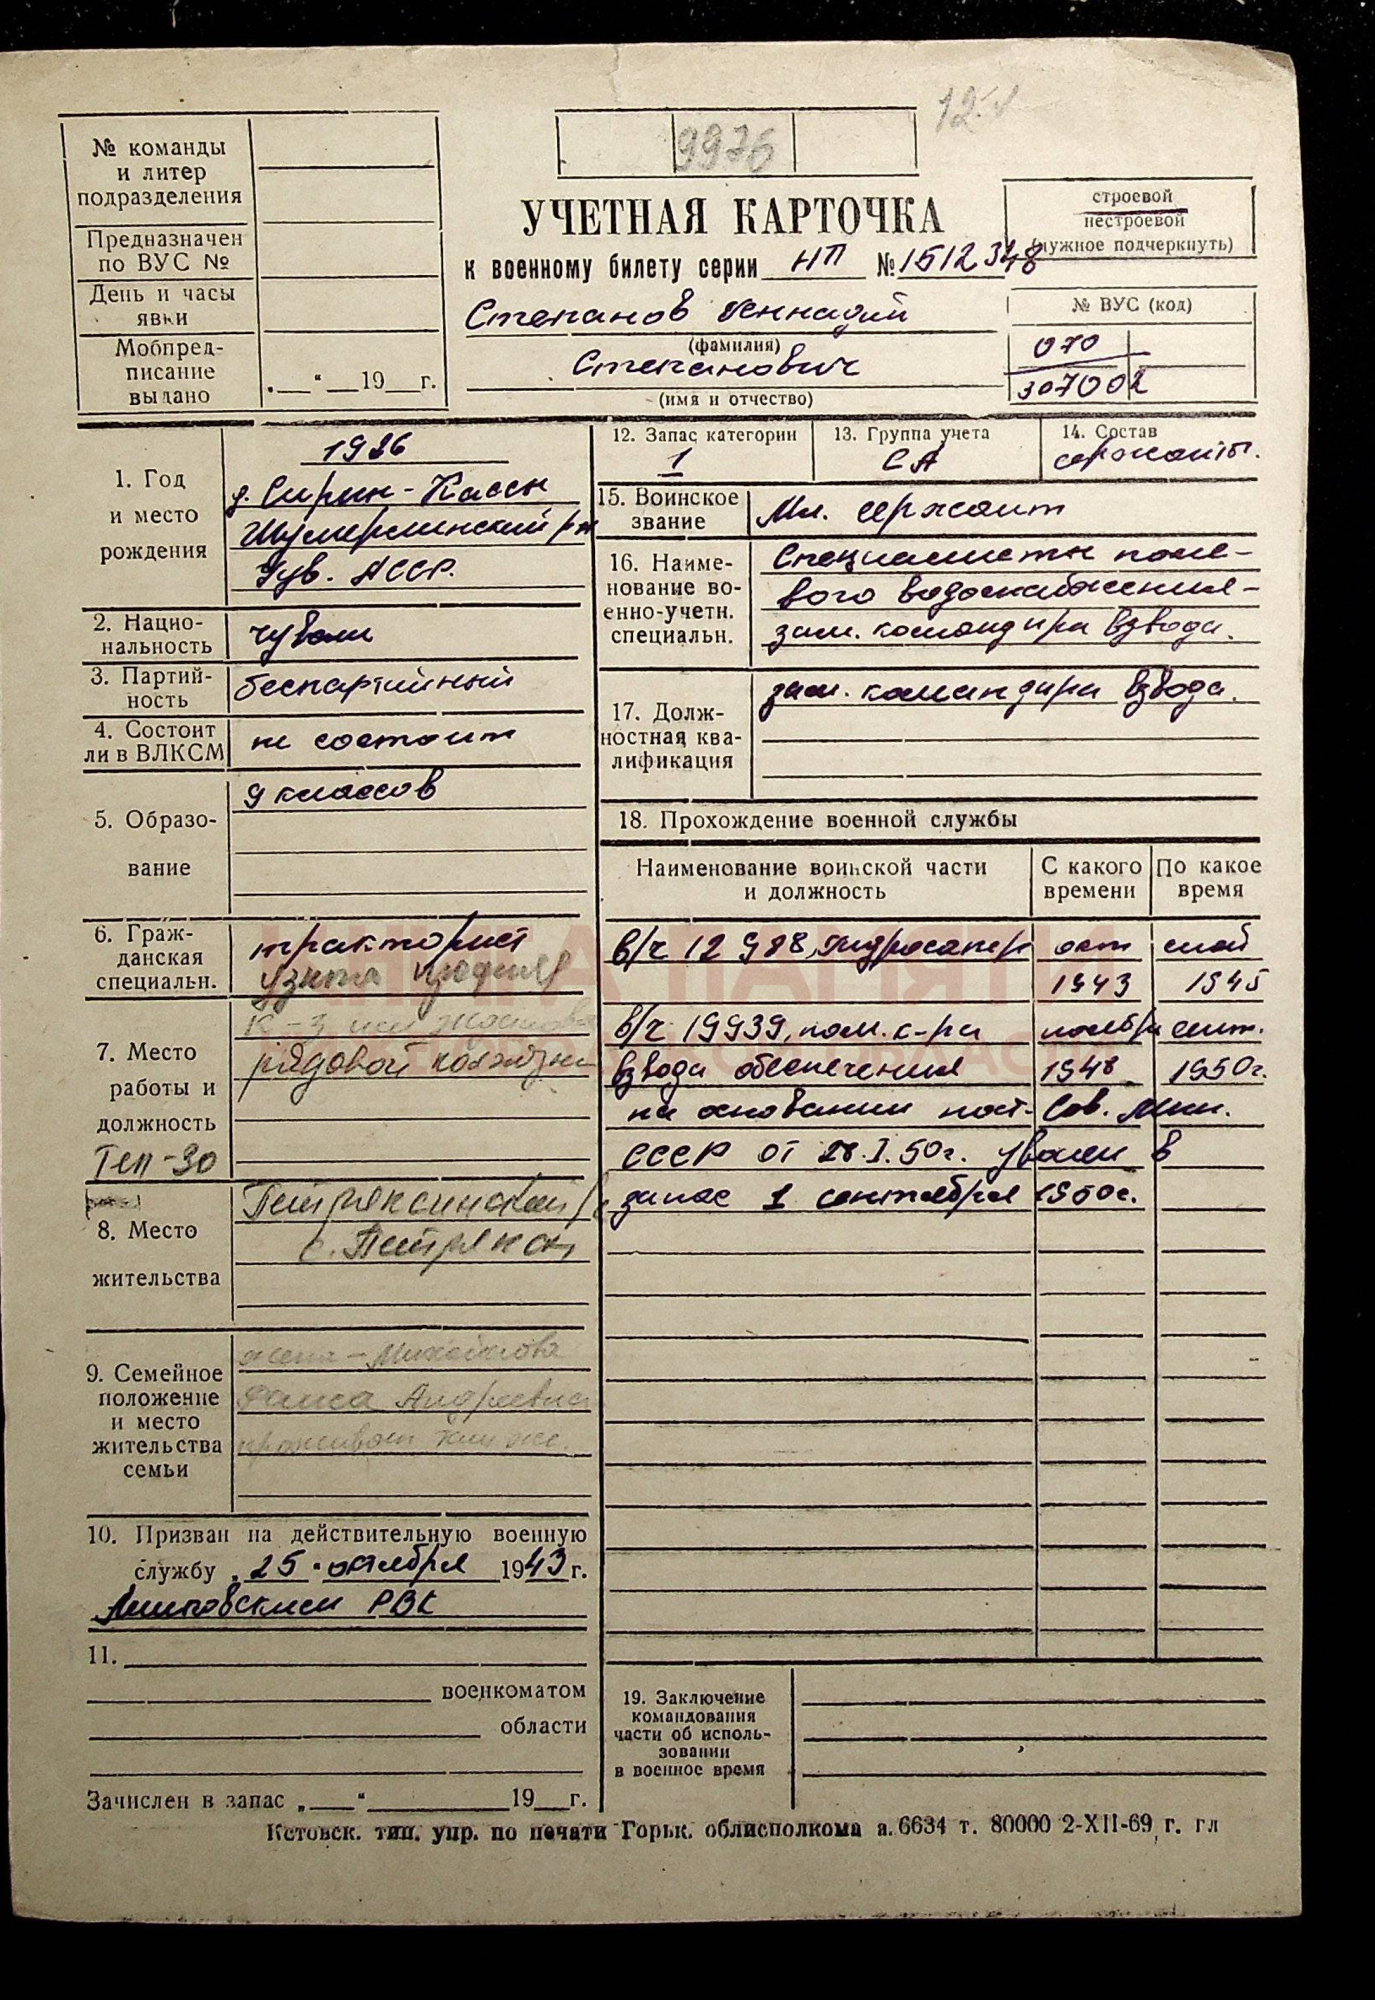 12.
9976
№ команды
и литер
подразделения
Предназначен
по ВУС №
День и часы
явки
Мобпред-
писание
выдано
„ — “ — 19 г.
УЧЕТНАЯ КАРТОЧКА
к военному билету серии НП № 1512348
Степанов Геннадий
(фамилия)
Степанович
(имя и отчество)
строевой
нестроевой
(нужное подчеркнуть)
№ ВУС (код)
070
307002
1. Год
и место
рождения
1926
д. Сирик-Кассы
Шумерлинский р-н
Чув. АССР.
2. Нацио-
нальность
чуваш
3. Партий-
ность
беспартийный
4. Состоит
ли в ВЛКСМ
не состоит
5. Образо-
вание
9 классов
6. Граж-
данская
специальн.
тракторист
профиля
7. Место
работы и
должность
к-з им
рядовой колхозник
Теп-30
8. Место
жительства
Петряксинский
с. Петряксы
9. Семейное
положение
и место
жительства
семьи
жена - Михайлова
Андреевна
проживает там же.
10. Призван на действительную военную
службу „25“ октября 1943 г.
РВК
11.
военкоматом
области
Зачислен в запас „ — “ 19 г.
12. Запас категории
1
13. Группа учета
СА
14. Состав
сержанты.
15. Воинское
звание
Мл. сержант
16. Наиме-
нование во-
енно-учетн.
специальн.
Специалисты поле-
вого водоснабжения -
зам. командира взвода.
17. Долж-
ностная ква-
лификация
зам. командира взвода.
18. Прохождение военной службы
Наименование воинской части
и должность
С какого
времени
По какое
время
в/ч 12988, гидросапер окт
1943 1945
в/ч 19939, пом. к-ра ноябрь сент.
взвода обеспечения 1948 1950г.
на основании пост. Сов. Мин.
СССР от 28.I.50г. уволен в
запас 1 сентября 1950г.
19. Заключение
командования
части об исполь-
зовании
в военное время
КНИГА ПАМЯТИ
НИЖЕГОРОДСКОЙ ОБЛАСТИ
Кстовск. тип. упр. по печати Горьк. облисполкома з. 6634 т. 80000 2-XII-69 г. гл